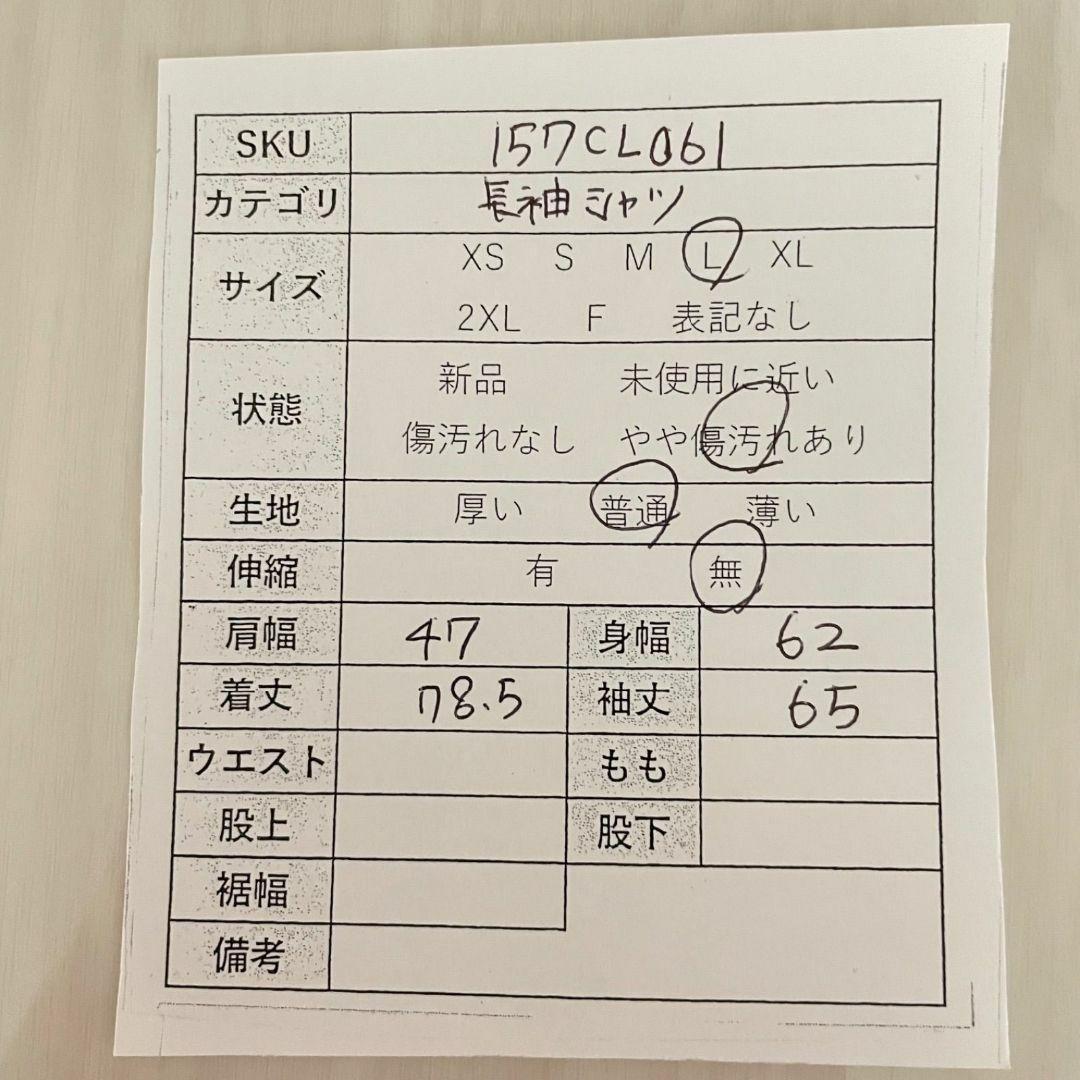 SKU 157CL061
カテゴリ 長袖シャツ
サイズ XS S M L XL
2XL F 表記なし
状態 新品 未使用に近い
傷汚れなし やや傷汚れあり
生地 厚い 普通 薄い
伸縮 有 無
肩幅 47 身幅 62
着丈 78.5 袖丈 65
ウエスト もも
股上 股下
裾幅
備考